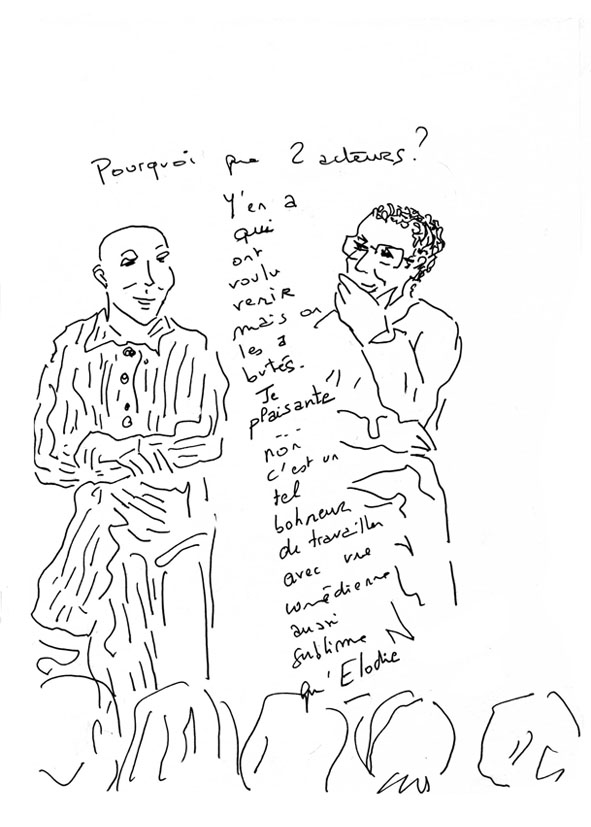 Pourquoi que 2 acteurs?
Y'en a
qui
ont
voulu
venir
mais on
les a
butés.
Je
plaisante
...
non
c'est un
tel
bohneur
de travailler
avec une
comédienne
aussi
sublime
qu'Elodie